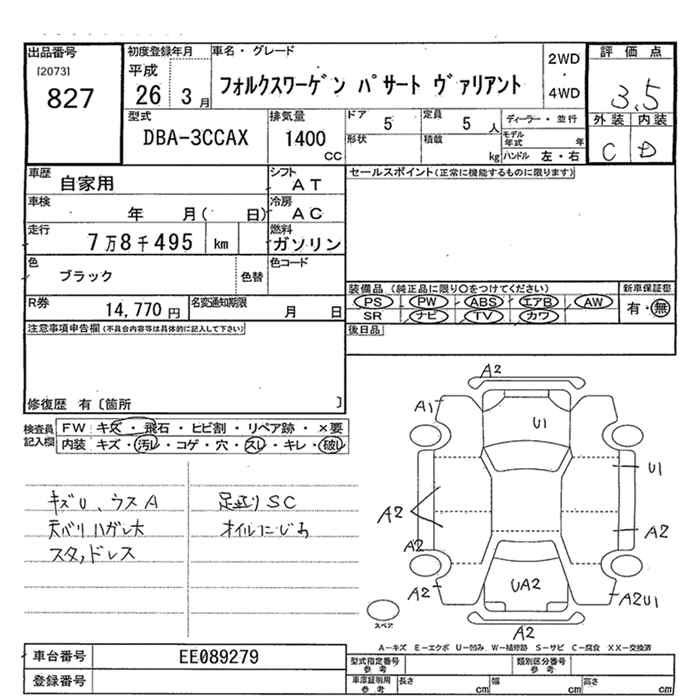 出品番号
[2073]
827
初度登録年月
平成
26 3月
車名・グレード
フォルクスワーゲン パサート ヴァリアント
2WD
・
4WD
評価点
3.5
外装 内装
C D
型式
DBA-3CCAX
排気量
1400
cc
ドア 5
定員 5 人
形状
積載 kg
ディーラー・並行
モデル年式 年
ハンドル 左・右
車歴 自家用
シフト AT
車検 年 月( 日)
冷房 AC
走行 7万8千495 km
燃料 ガソリン
色 ブラック
色替
色コード
R券 14,770円
名変通知期限 月 日
セールスポイント(正常に機能するものに限ります)
装備品(純正品に限り○をつけてください)
PS PW ABS エアB AW
SR ナビ TV カワ
新車保証書
有・無
後日品
注意事項申告欄(不具合内容等は具体的に記入して下さい)
修復歴 有〔箇所 〕
検査員記入欄
FW キズ・飛石・ヒビ割・リペア跡・×要
内装 キズ・汚レ・コゲ・穴・スレ・キレ・破レ
キズU、ウスA
天バリハガレ大
スタッドレス
足廻りSC
オイルにじみ
A2
A1
U1
U1
A2
A2
A2
A2
UA2
A2U1
A2
スペア
A-キズ E-エクボ U-凹み W-補修跡 S-サビ C-腐食 XX-交換済
車台番号 EE089279
登録番号
型式指定番号 参考
類別区分番号 参考
車庫証明用 参考
長さ cm
幅 cm
高さ cm